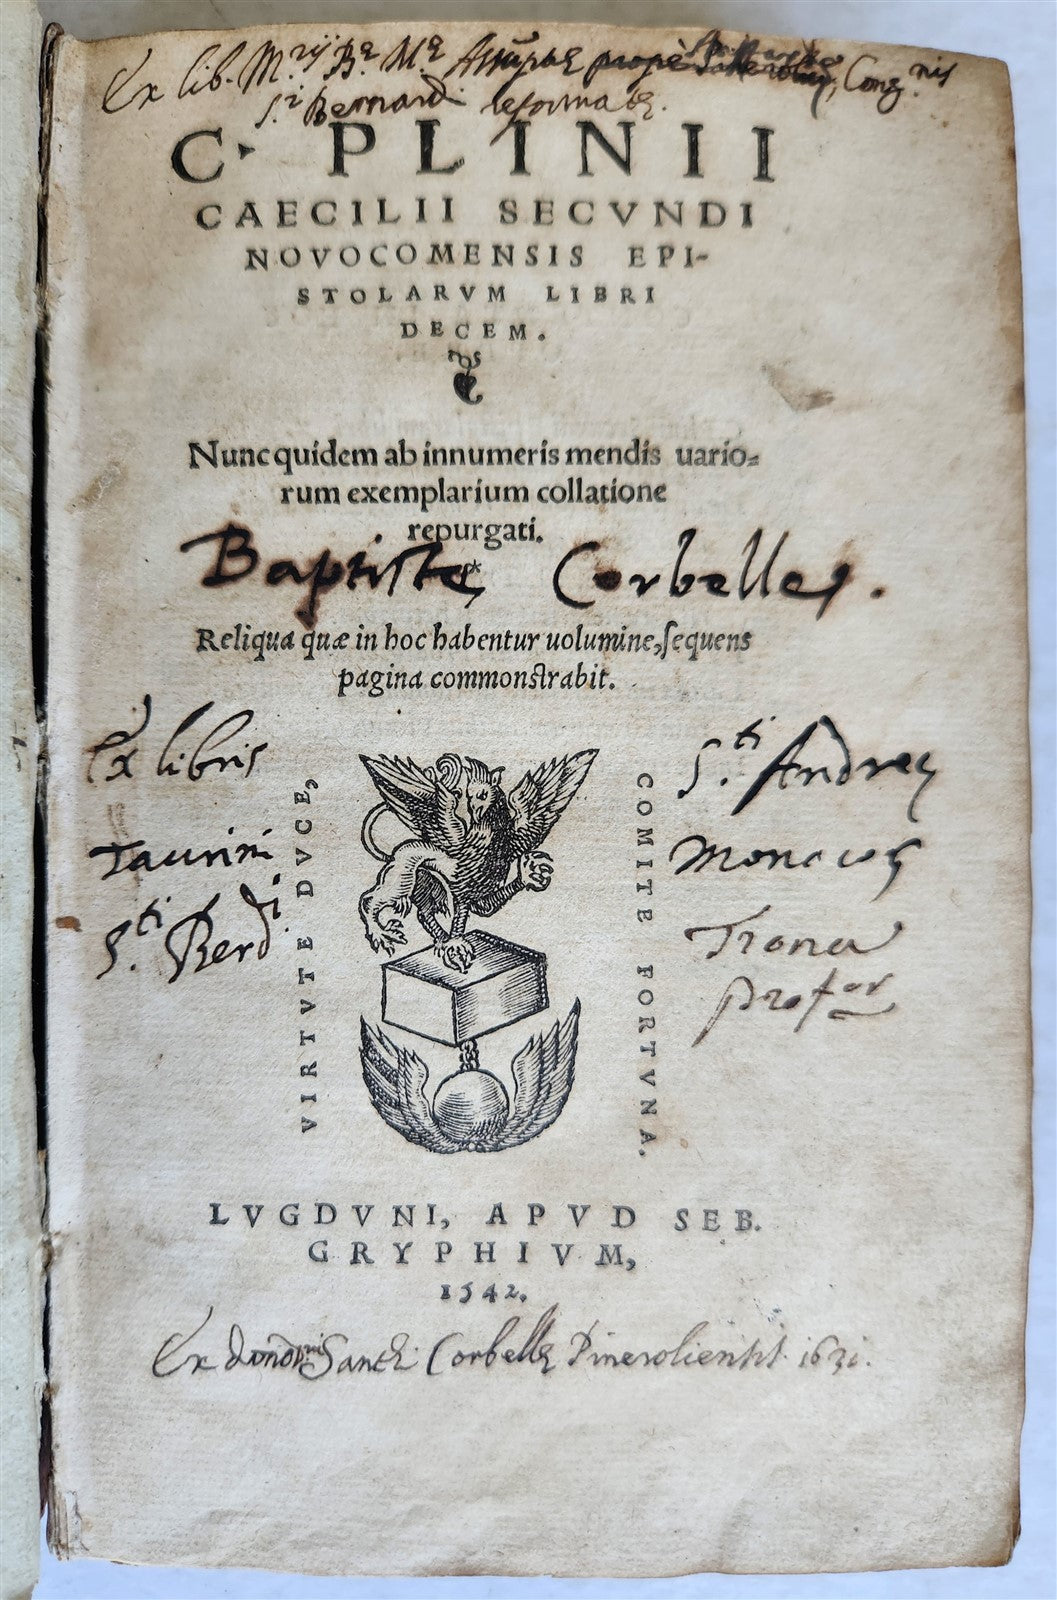 Ex lib. M.rij Bæ Mæ Assūptæ propè Cong.nis
S.i Bernardi reformatæ.
C. PLINII
CAECILII SECVNDI
NOVOCOMENSIS EPI-
STOLARVM LIBRI
DECEM.
Nunc quidem ab innumeris mendis uario-
rum exemplarium collatione
repurgati.
*
Baptiste Corbelles.
Reliqua quæ in hoc habentur uolumine, sequens
pagina commonstrabit.
Ex libris
S.ti Andreę
Taurini
S.ti Berdi
VIRTVTE DVCE,
COMITE FORTVNA.
LVGDVNI, APVD SEB.
GRYPHIVM,
1542.
Ex Corbellę 1631.